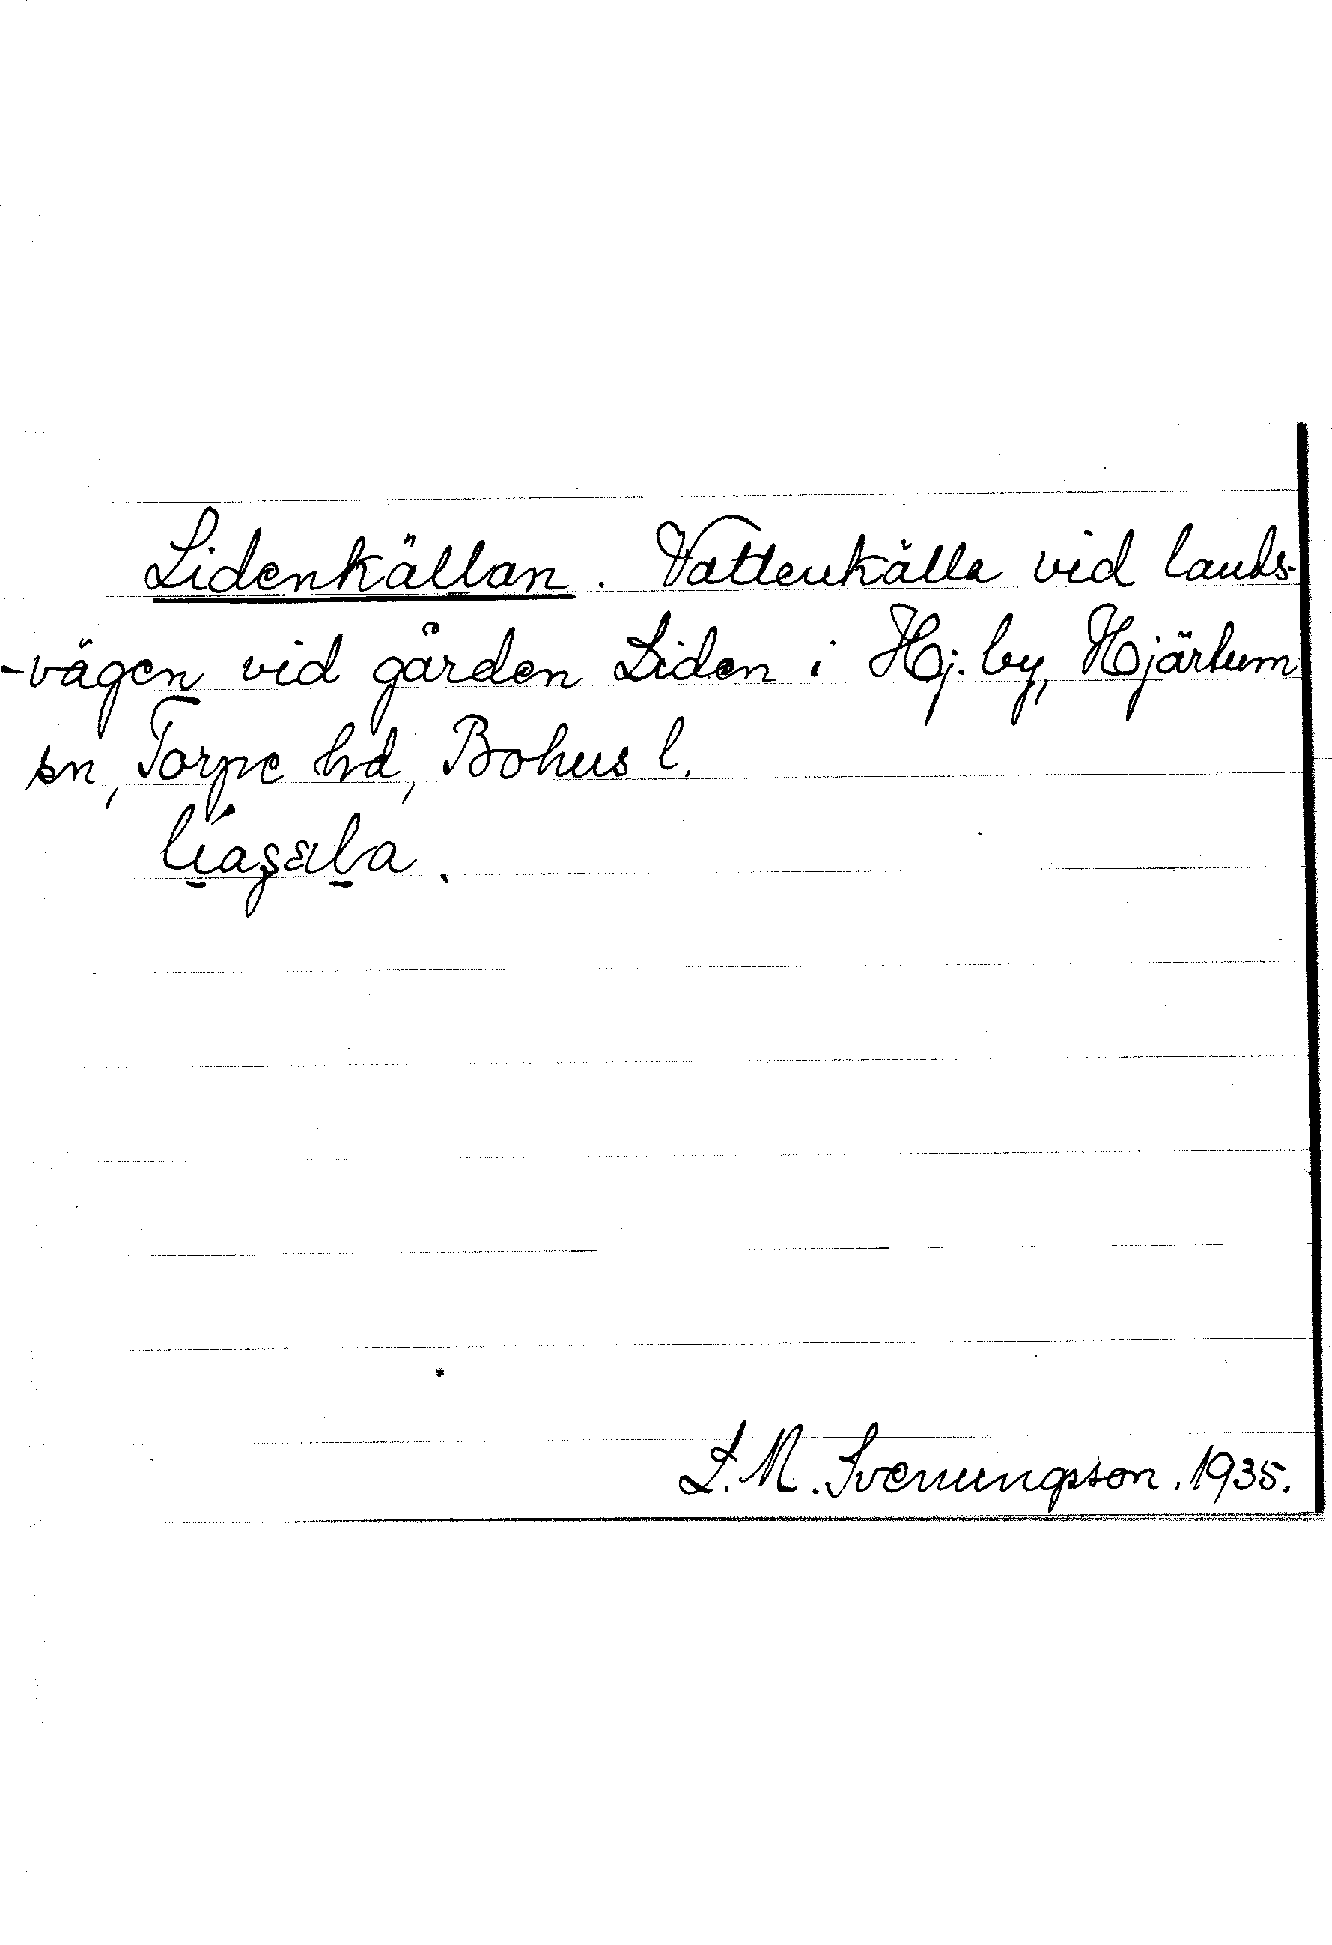 Lidenkällan. Vattenkälla vid lands-
-vägen vid gården Liden i Hj. by, Hjärtum
sn, Torpe hd, Bohus l.
L. M. Svenungsson. 1935.